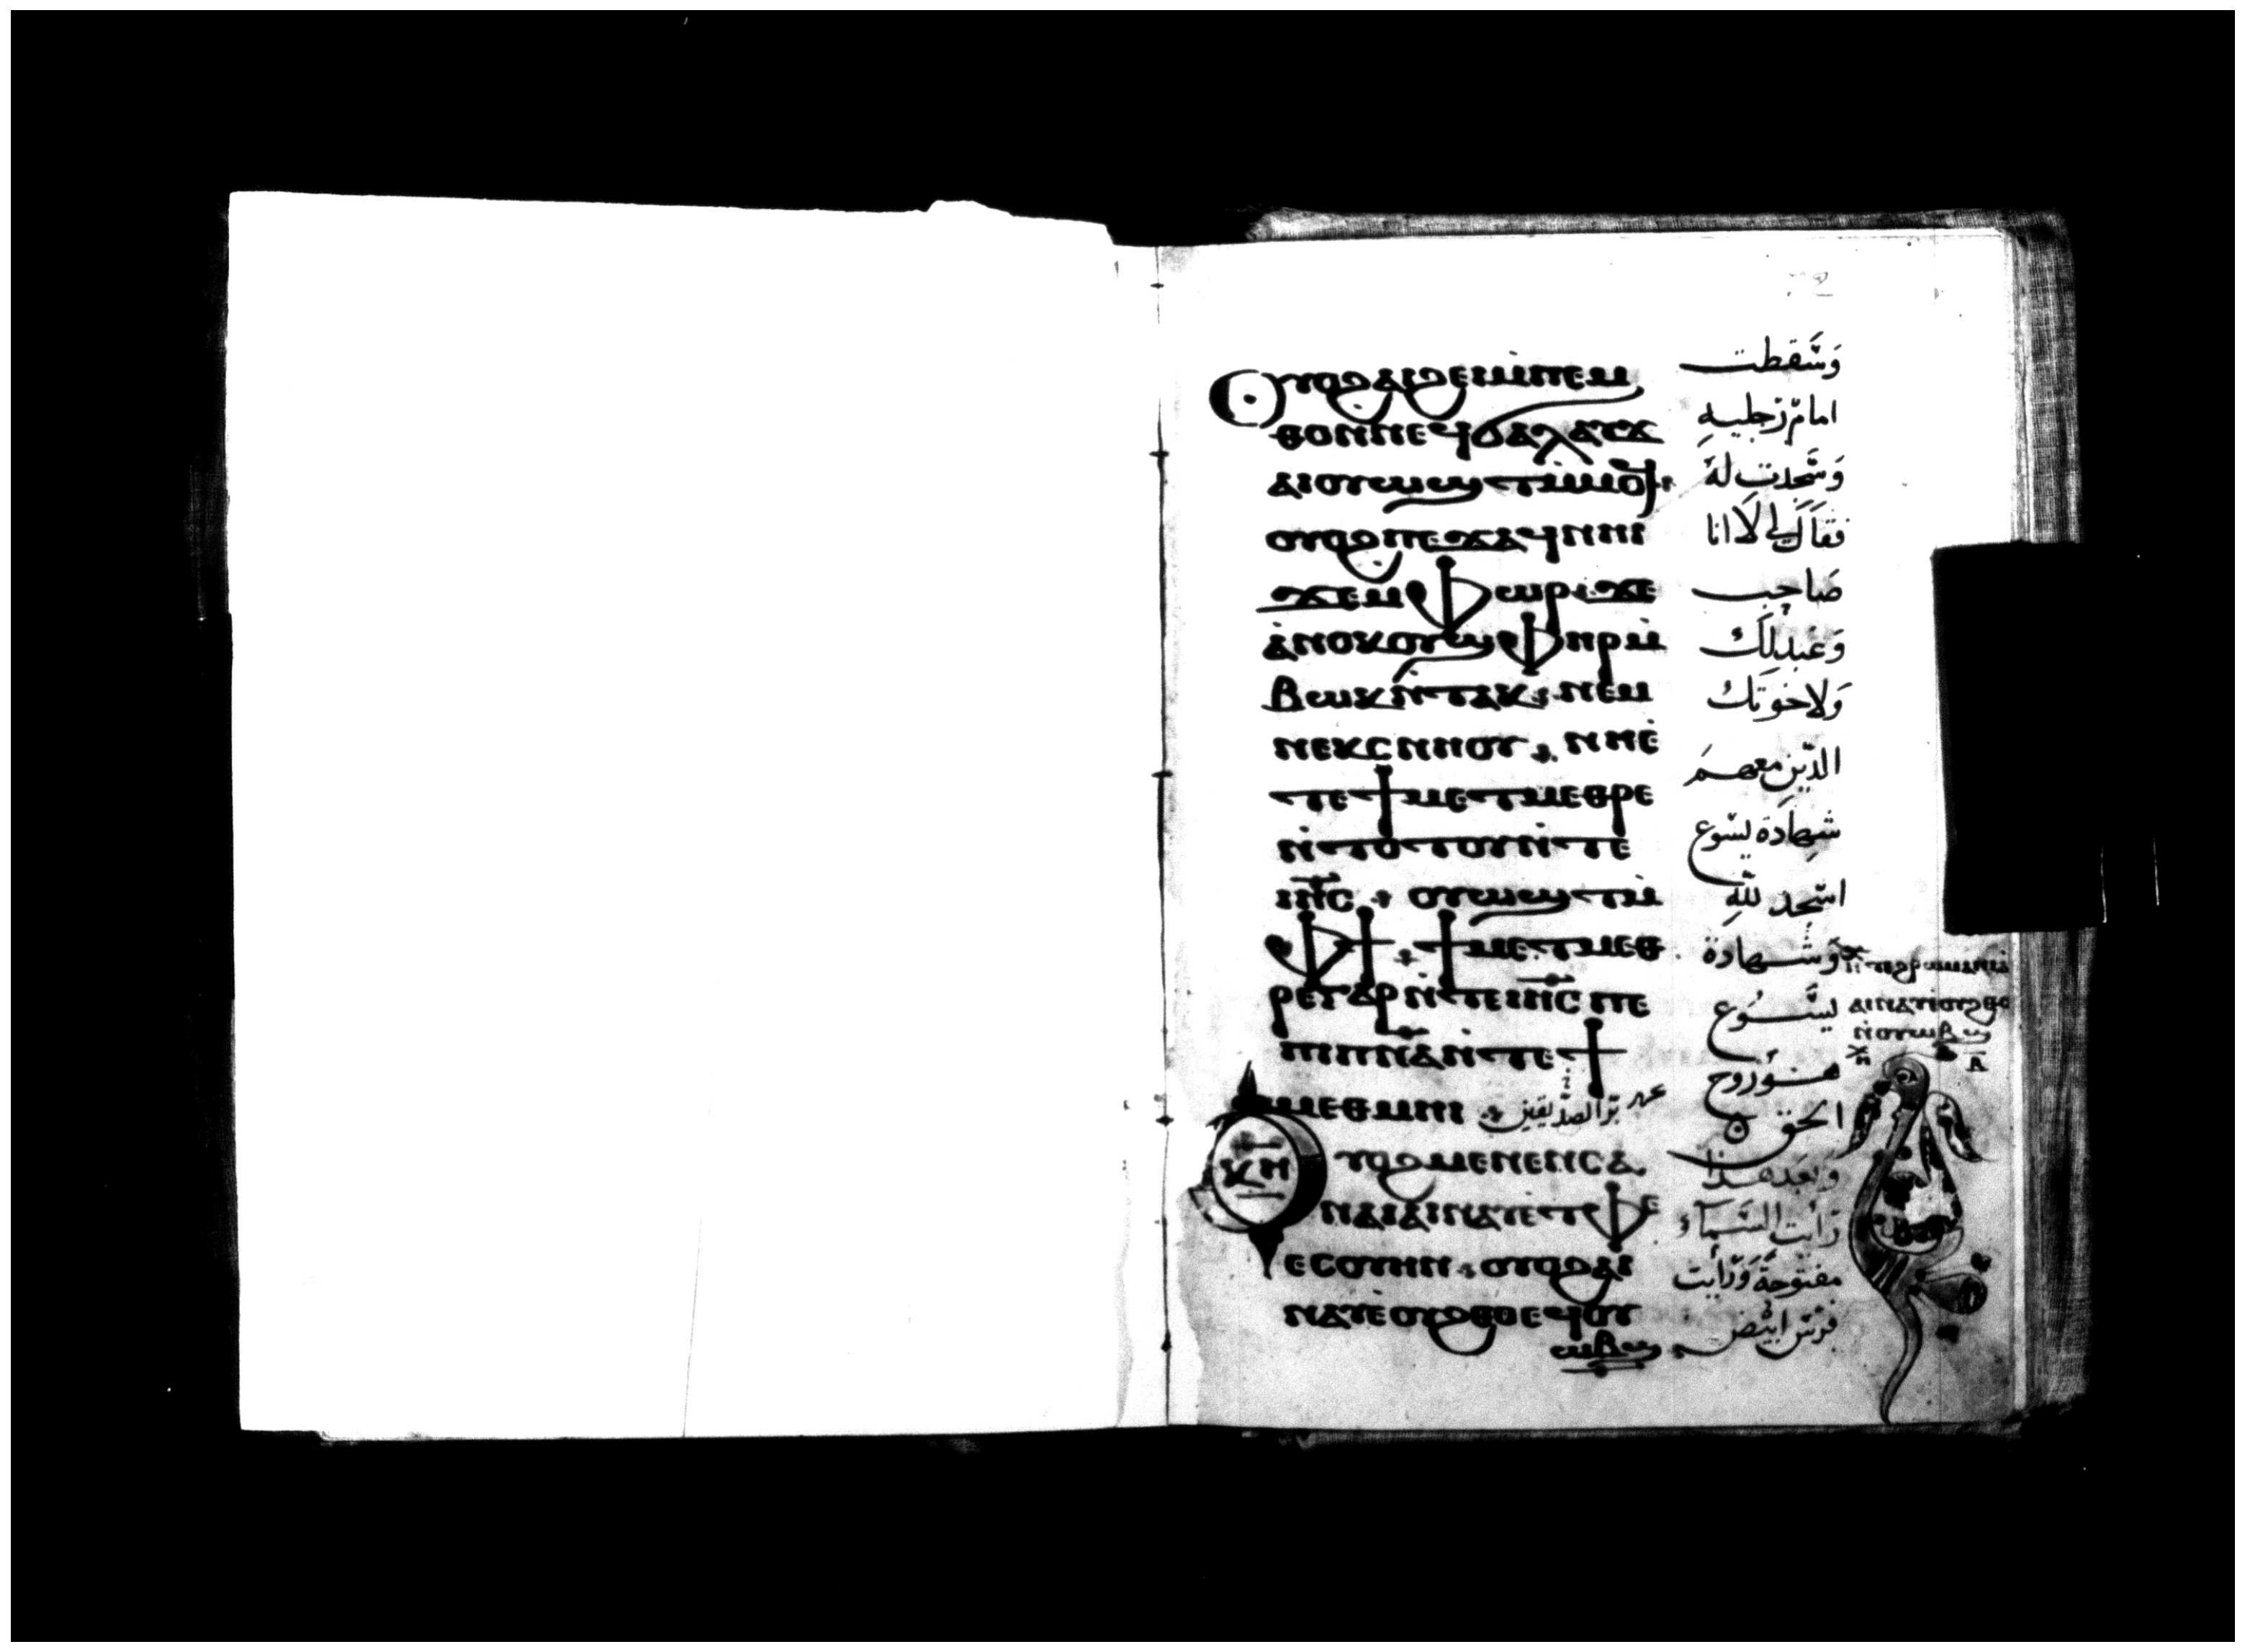 Ⲟⲩⲟϩ ⲁⲓϩⲉⲓ ⲙ̇ⲡⲉⲙ
ⲑⲟ ⲛ ⲛⲉϥϭⲁⲗⲁⲩϫ
ⲁⲓⲟⲩⲱϣⲧ ⲙ̇ⲙⲟϥ ⁘
ⲟⲩⲟϩ ⲡⲉϫⲁϥ ⲛⲏⲓ
ϫⲉ ⲙⲫⲱⲣ ⲓ ϫⲉ
ⲁ̇ⲛⲟⲕ ⲟⲩϣⲫⲏⲣ ⲙ̇
ⲃⲱⲕ ⲛ̇ⲧⲁⲕ ⁘ ⲛⲉⲙ
ⲛⲉⲕⲥⲛⲏⲟⲩ ⁘ ⲛⲏⲉ̇
ⲧⲉ ϯⲙⲉⲧⲙⲉⲑⲣⲉ
ⲛ̇ⲧⲟⲧⲟⲩ ⲛ̇ⲧⲉ
ⲓⲏ̅ⲥ ⁘ ⲟⲩⲱϣⲧ ⲙ̇
ⲫϯ ⁘ ϯⲙⲉⲧⲙⲉⲑ
ⲣⲉ ⲅⲁⲣ ⲛ̇ⲧⲉ ⲓⲏ̅ⲥ ⲡⲉ
ⲡⲓⲡⲛ̅ⲁ ⲛ̇ⲧⲉ ϯ
ⲙⲉⲑⲙⲏⲓ ⁘
ⲕⲏ
ⲩⲟϩ ⲙⲉⲛⲉⲛⲥⲁ
ⲛⲁⲓ ⲁⲓⲛⲁⲩ ⲉ̇ⲧⲫⲉ
ⲉⲥⲟⲩⲏⲛ ⁘ ⲟⲩⲟϩ ⲁⲓ
ⲛⲁⲩ ⲉ̇ⲟⲩϩⲑⲟ ⲉϥⲟⲩ
ⲱⲃϣ
وَسَقطت
امام رَجليهِ
وَسَجَدت لهُ
فقاَلَ لي لَا انا
صَاحب
وَعَبدلَكَ
وَلاخوتك
الذّين معهم
شهاَدَة يسُوع
اسْجد للهِ
وَشهادة
يسُوع
هوَ رُوح
الحَق
وَبعدَ هَذَا
رَأيت السَّمآء
مفتوحَة وَرَأيت
فرَسْ ابيْض
ⲁⲓⲛⲁⲩ ⲓ̇ⲟⲩϩⲑⲟ
ⲛ̇ⲟⲩⲱⲃϣ